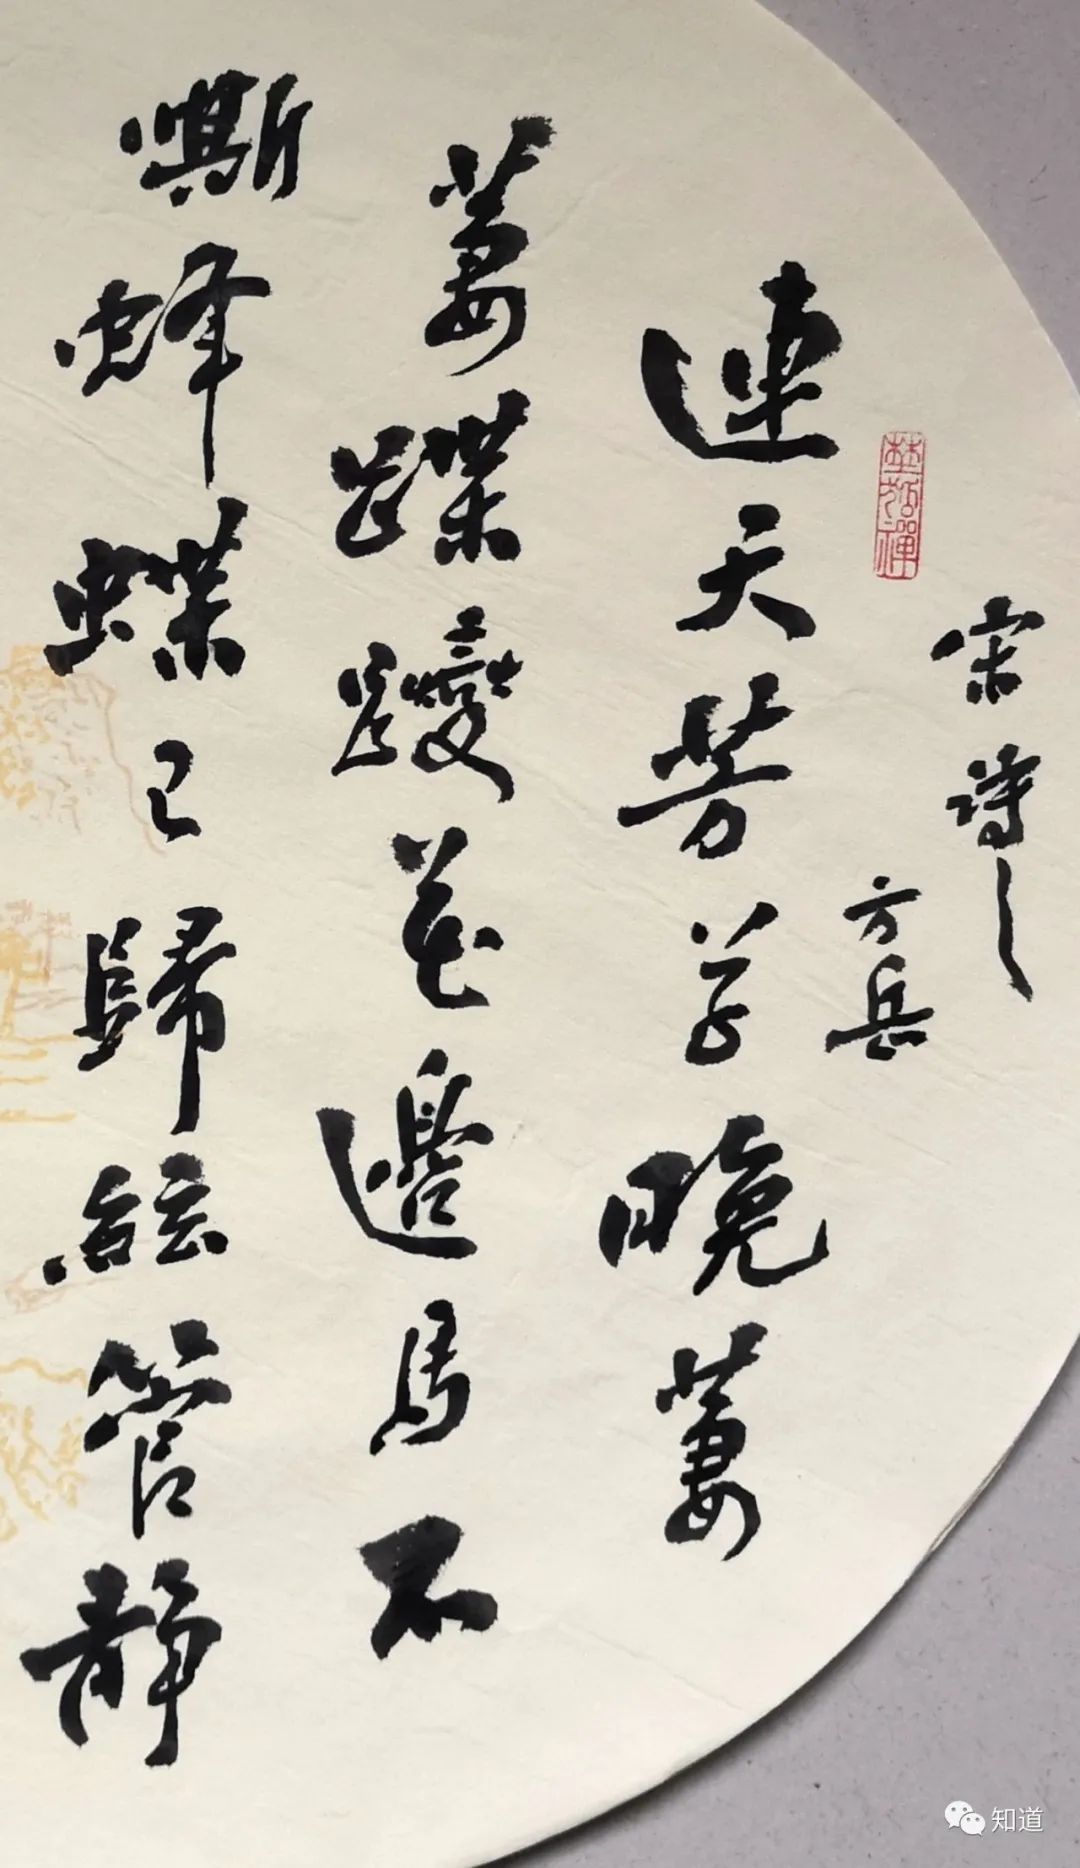 宋诗之
方岳
連天芳草晚萋
萋蹀躞花邊馬不
嘶蜂蝶已歸絃管靜
知道